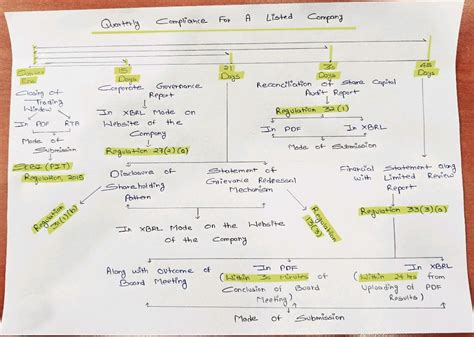 Quarterly Compliance For A Listed Company
Quarter
End
15
Days
21
Days
30
Days
45
Days
Closing of
Trading
Window
In PDF
Mode of
Submission
SEBI (PIT)
Regulation, 2015
Corporate Governance
Report
In XBRL Mode on
Website of the
Company
Regulation 27(2)(a)
Reconciliation of Share Capital
Audit Report
In PDF
In XBRL
Mode of Submission
Disclosure of
Shareholding
Pattern
Regulation
31(1)(b)
Statement of
Grievance Redressal
Mechanism
Regulation
13(3)
In XBRL Mode on the Website
of the Company
Financial Statement along
with Limited Review
Report
Regulation 33(3)(a)
Along with Outcome of
Board Meeting
In PDF
(Within 30 minutes of
Conclusion of Board
Meeting)
In XBRL
(Within 24 hrs from
Uploading of PDF
Results)
Mode of Submission